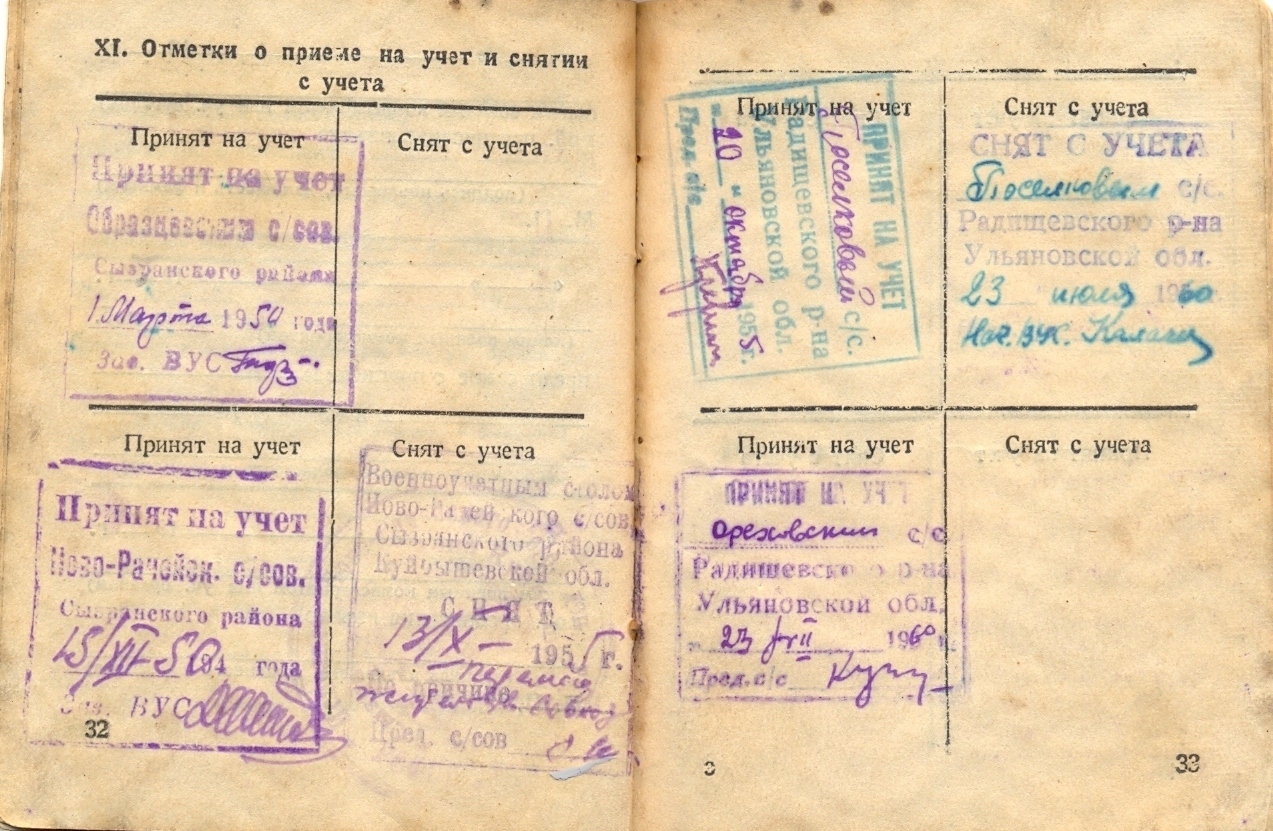 XI. Отметки о приеме на учет и снятии
с учета
Принят на учет
Снят с учета
Принят на учет
Образцовским с/сов.
Сызранского района
1 Марта 1950 года
Зав. ВУС
Принят на учет
Снят с учета
Принят на учет
Ново-Рачейск. с/сов.
Сызранского района
15/XII-50 194 года
Зав. ВУС
Военноучетным столом
Ново-Рачейского с/сов.
Сызранского района
Куйбышевской обл.
СНЯТ
13/X- 1955 г.
По причине
Пред. с/сов
32
Принят на учет
Снят с учета
ПРИНЯТ НА УЧЕТ
Поселковый с/с.
Радищевского р-на
Ульяновской обл.
"20" октября 1955 г.
Пред. с/с.
СНЯТ С УЧЕТА
Поселковым с/с.
Радищевского р-на
Ульяновской обл.
23 июля 1960
Нач. ВУС.
Принят на учет
Снят с учета
ПРИНЯТ НА УЧЕТ
Ореховским с/с
Радищевского р-на
Ульяновской обл.
" 23 " VII 1960 г.
Пред. с/с
3
33